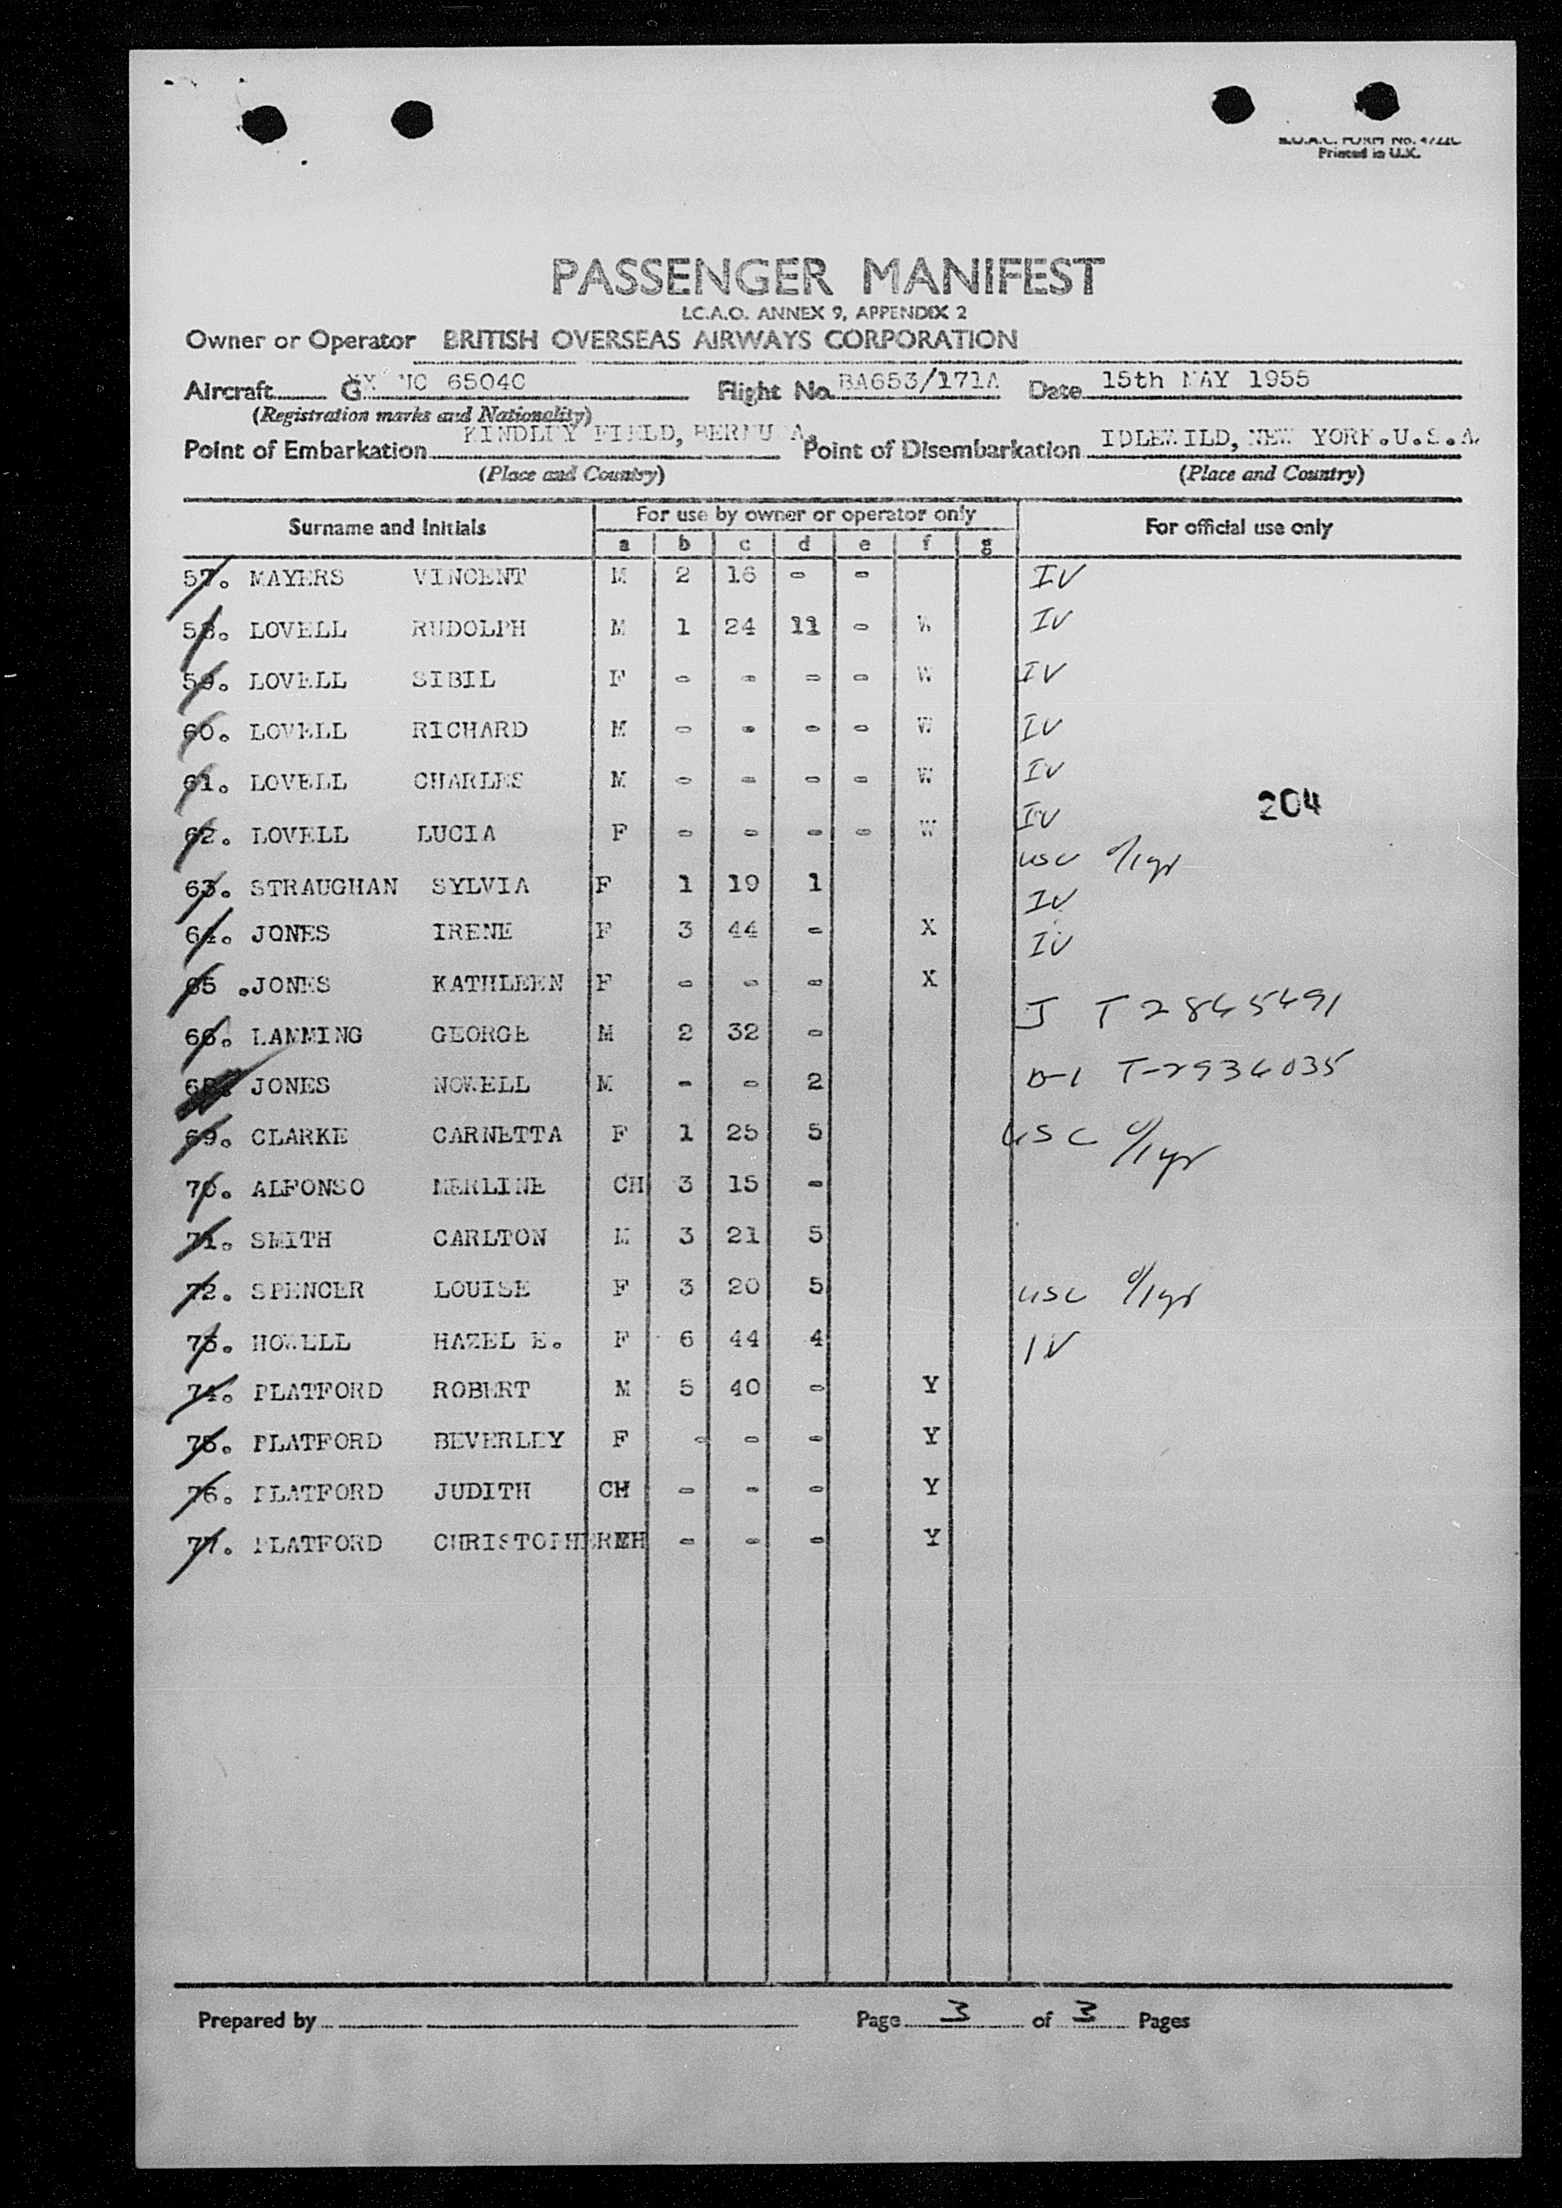 B.O.A.C. FORM No. 4722C
Printed in U.K.
PASSENGER MANIFEST
I.C.A.O. ANNEX 9, APPENDIX 2
Owner or Operator BRITISH OVERSEAS AIRWAYS CORPORATION
Aircraft G 6504C Flight No. BA653/171A Date 15th MAY 1955
(Registration marks and Nationality)
Point of Embarkation KINDLEY FIELD, BERMUDA. Point of Disembarkation IDLEWILD, NEW YORK.U.S.A.
(Place and Country) (Place and Country)
Surname and Initials For use by owner or operator only For official use only
a b c d e f g
57. MAYERS VINCENT M 2 16 - - IV
58. LOVELL RUDOLPH M 1 24 11 - W IV
59. LOVELL SIBIL F - - - - W IV
60. LOVELL RICHARD M - - - - W IV
61. LOVELL CHARLES M - - - - W IV
204
62. LOVELL LUCIA F - - - - W IV
usc o/1yr
63. STRAUGHAN SYLVIA F 1 19 1 IV
64. JONES IRENE F 3 44 - X IV
65 .JONES KATHLEEN F - - - X
66. LAMMING GEORGE M 2 32 - J T
68. JONES NOWELL M - - 2
69. CLARKE CARNETTA F 1 25 5 usc o/1yr
70. ALFONSO MERLINE CH 3 15 -
71. SMITH CARLTON M 3 21 5
72. SPENCER LOUISE F 3 20 5 usc o/1yr
73. HOWELL HAZEL E. F 6 44 4 IV
74. PLATFORD ROBERT M 5 40 - Y
75. PLATFORD BEVERLEY F - - - Y
76. PLATFORD JUDITH CH - - - Y
77. PLATFORD CHRISTOPHER CH - - - Y
Prepared by Page 3 of 3 Pages